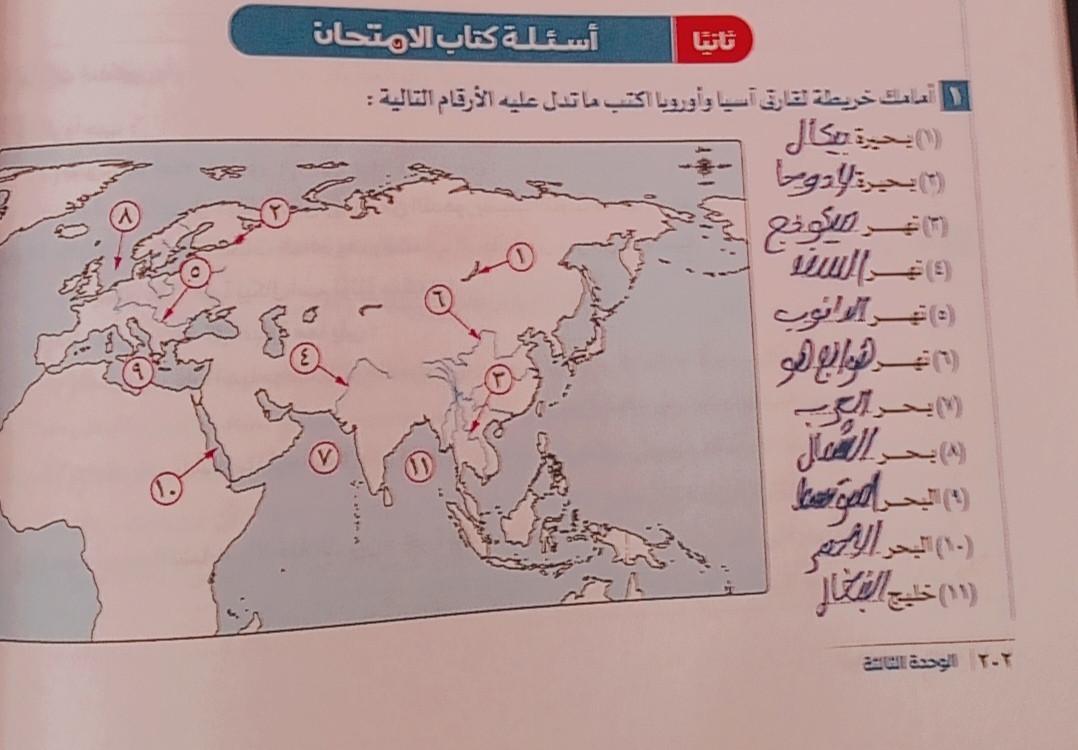 ثانيًا أسئلة كتاب الامتحان
١ أمامك خريطة لقارتى آسيا وأوروبا اكتب ما تدل عليه الأرقام التالية :
(١) بحيرة بيكال
(٢) بحيرة لادوجا
(٣) نهر ميكونج
(٤) نهر السند
(٥) نهر الدانوب
(٦) نهر هوانج هو
(٧) بحر العرب
(٨) بحر الشمال
(٩) البحر المتوسط
(١٠) البحر الأحمر
(١١) خليج البنغال
٨
٢
٥
١
٦
٤
٩
٣
٧
١١
١٠
٢٠٢ الوحدة الثالثة